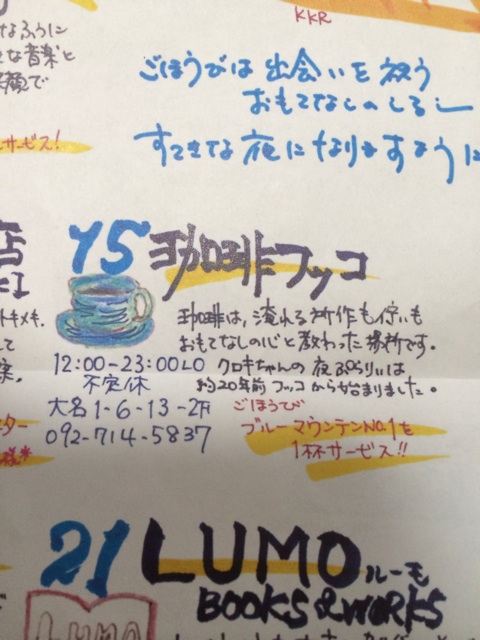 KKR
なふうに
な音楽と
顔で
サービス!
ごほうびは 出会いを 祝う
おもてなしのしるし
すてきな 夜に なりますように
15 珈琲フッコ
珈琲は、淹れる所作も佇いも
おもてなしの心と教わった場所です。
クロキちゃんの 夜ぷらりぃは
約20年前 フッコから始まりました。
12:00-23:00LO
不定休
大名1-6-13-2F
092-714-5837
ごほうび
ブルーマウンテンNO.1を
1杯サービス!!
店
トキメキ。
して
スター
様*
21 LUMO ルーモ
BOOKS & WORKS
LUMO